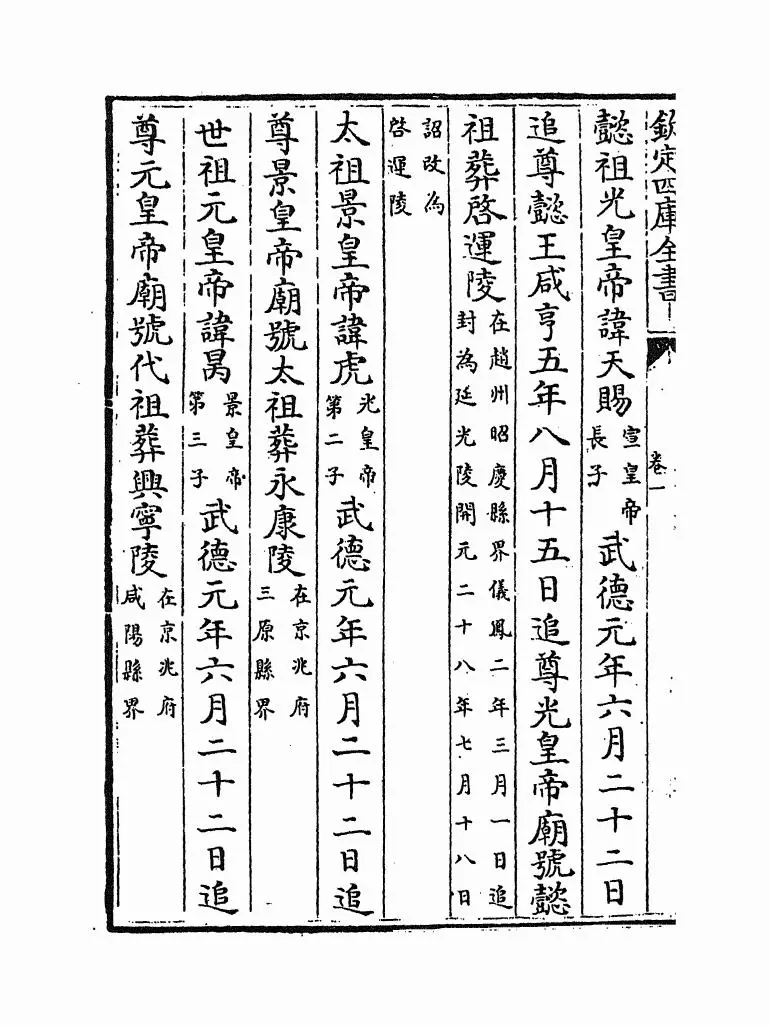 欽定四庫全書
卷一
懿祖光皇帝諱天賜宣皇帝長子武德元年六月二十二日
追尊懿王咸亨五年八月十五日追尊光皇帝廟號懿
祖葬啓運陵在趙州昭慶縣界儀鳳二年三月一日追封為延光陵開元二十八年七月十八日
詔改為啓運陵
太祖景皇帝諱虎光皇帝第二子武德元年六月二十二日追
尊景皇帝廟號太祖葬永康陵在京兆府三原縣界
世祖元皇帝諱昺景皇帝第三子武德元年六月二十二日追
尊元皇帝廟號代祖葬興寧陵在京兆府咸陽縣界